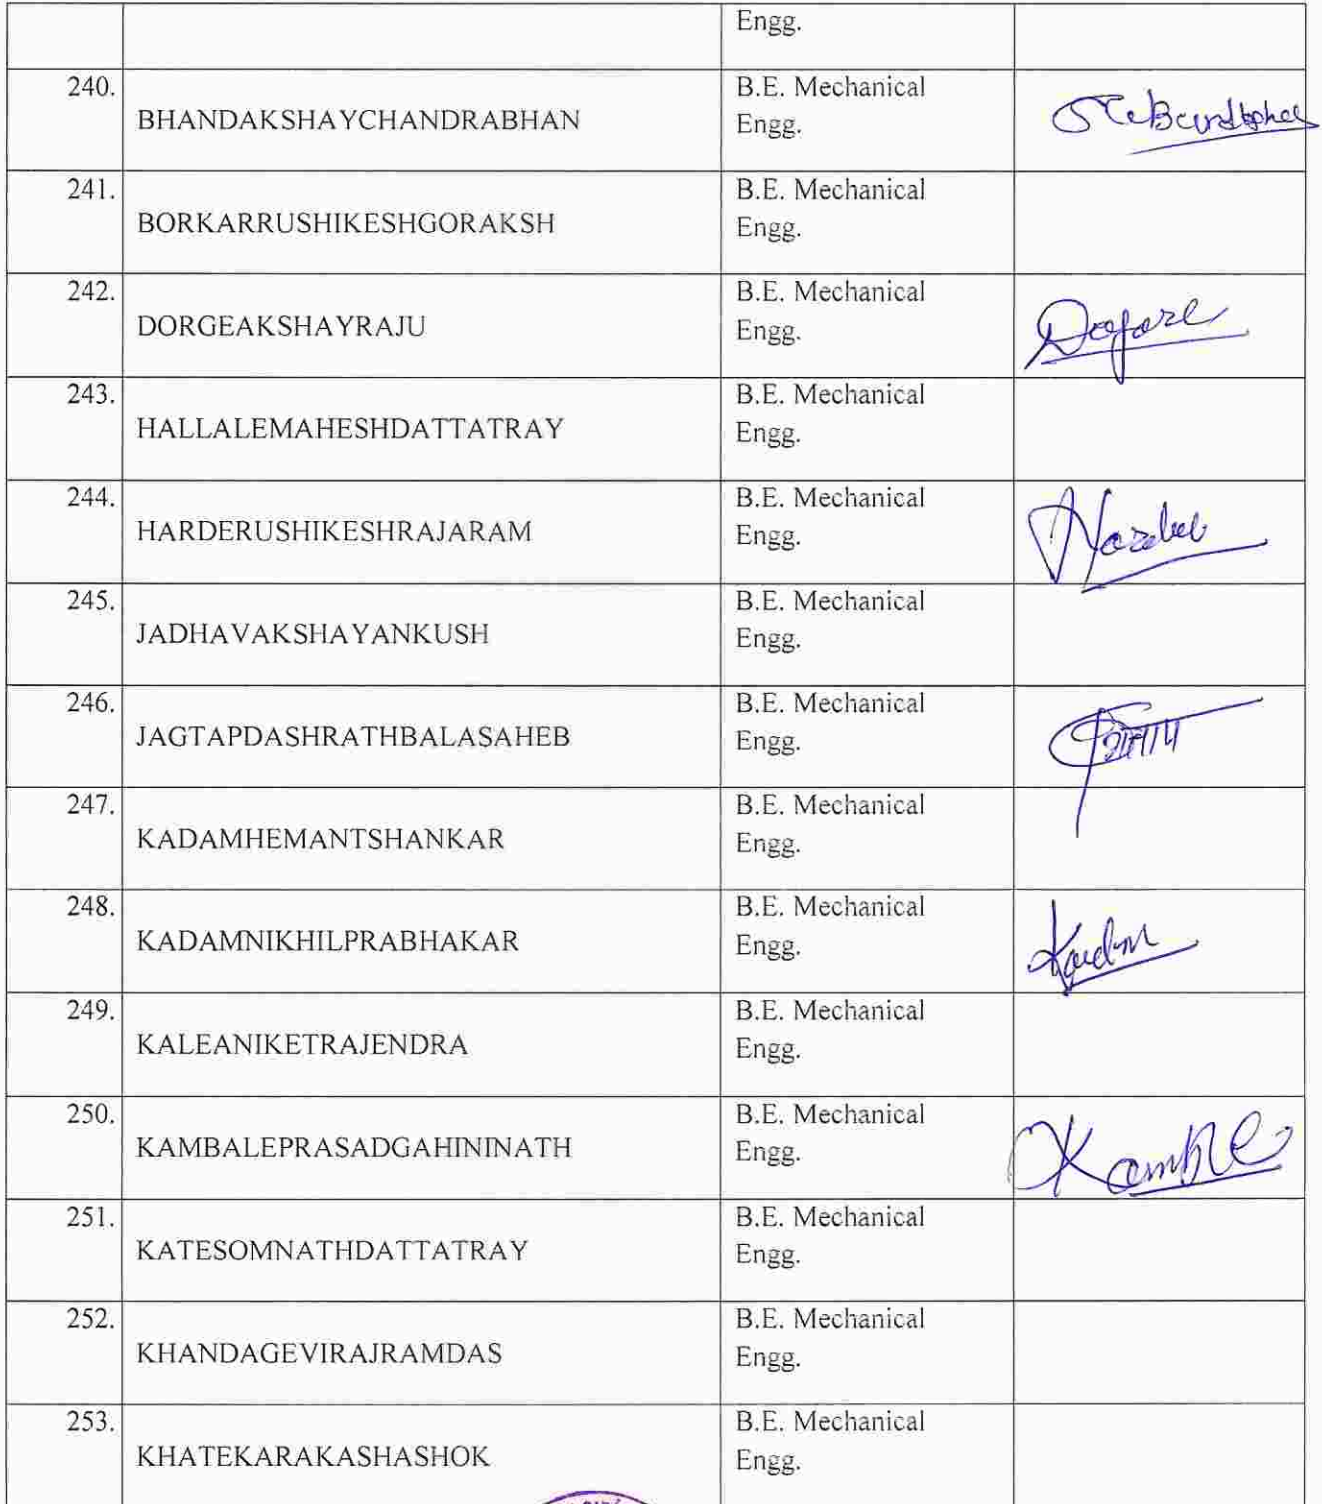 Engg.
240.
BHANDAKSHAYCHANDRABHAN
B.E. Mechanical
Engg.
241.
BORKARRUSHIKESHGORAKSH
B.E. Mechanical
Engg.
242.
DORGEAKSHAYRAJU
B.E. Mechanical
Engg.
243.
HALLALEMAHESHDATTATRAY
B.E. Mechanical
Engg.
244.
HARDERUSHIKESHRAJARAM
B.E. Mechanical
Engg.
245.
JADHAVAKSHAYANKUSH
B.E. Mechanical
Engg.
246.
JAGTAPDASHRATHBALASAHEB
B.E. Mechanical
Engg.
247.
KADAMHEMANTSHANKAR
B.E. Mechanical
Engg.
248.
KADAMNIKHILPRABHAKAR
B.E. Mechanical
Engg.
249.
KALEANIKETRAJENDRA
B.E. Mechanical
Engg.
250.
KAMBALEPRASADGAHININATH
B.E. Mechanical
Engg.
Kamble
251.
KATESOMNATHDATTATRAY
B.E. Mechanical
Engg.
252.
KHANDAGEVIRAJRAMDAS
B.E. Mechanical
Engg.
253.
KHATEKARAKASHASHOK
B.E. Mechanical
Engg.